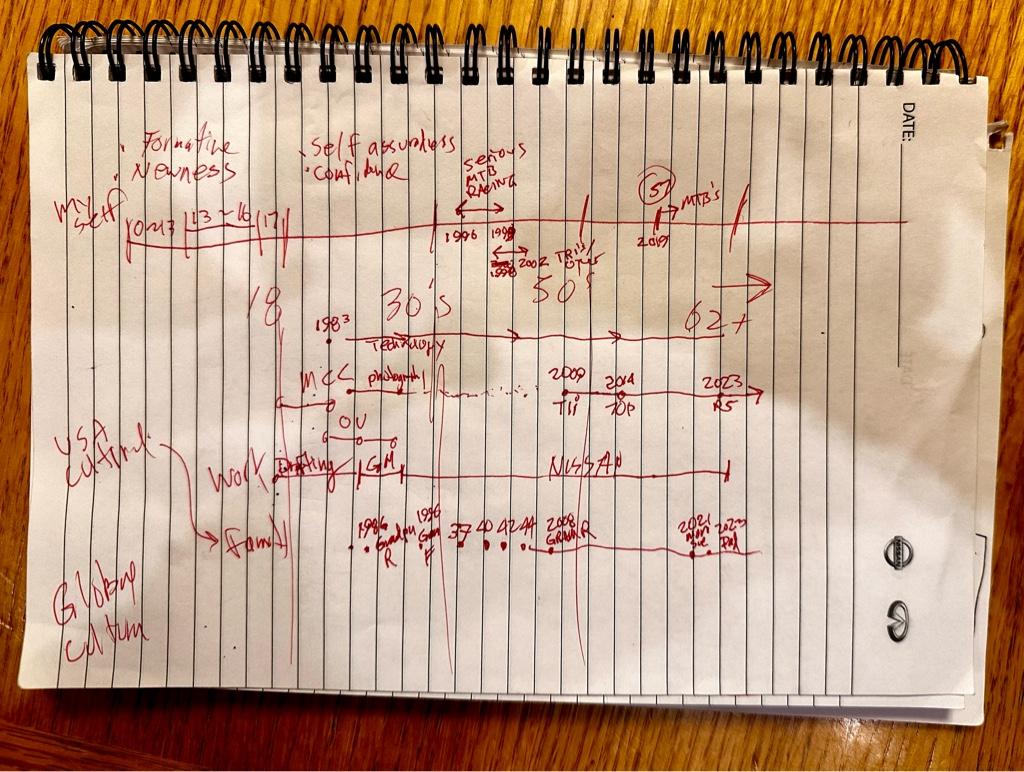 DATE:
• Formative
• Newness
• Self assuredness
• confidence
Serious
MTB
RACING
57
MTB's
my
self
0-13
13-16
17
1996
1998
2019
1998
2002
TRI'S/
18
30's
50's
62+
1983
Technology
MCC
photography
2009
2014
2023
TII
TOP
R5
OU
USA
cultural
Work
Drafting
GM
NISSAN
Family
1986
Grandpa
R
1996
Gram
F
37
40
42
44
2008
Gramma R
2021
Mom
Sue
2023
Dad
Global
culture
NISSAN